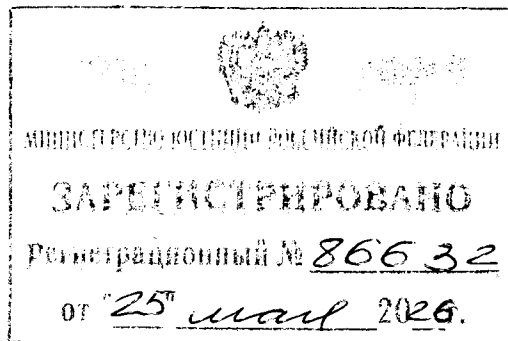 МИНИСТЕРСТВО ЮСТИЦИИ РОССИЙСКОЙ ФЕДЕРАЦИИ
ЗАРЕГИСТРИРОВАНО
Регистрационный № 86632
от "25" мая 2026г.